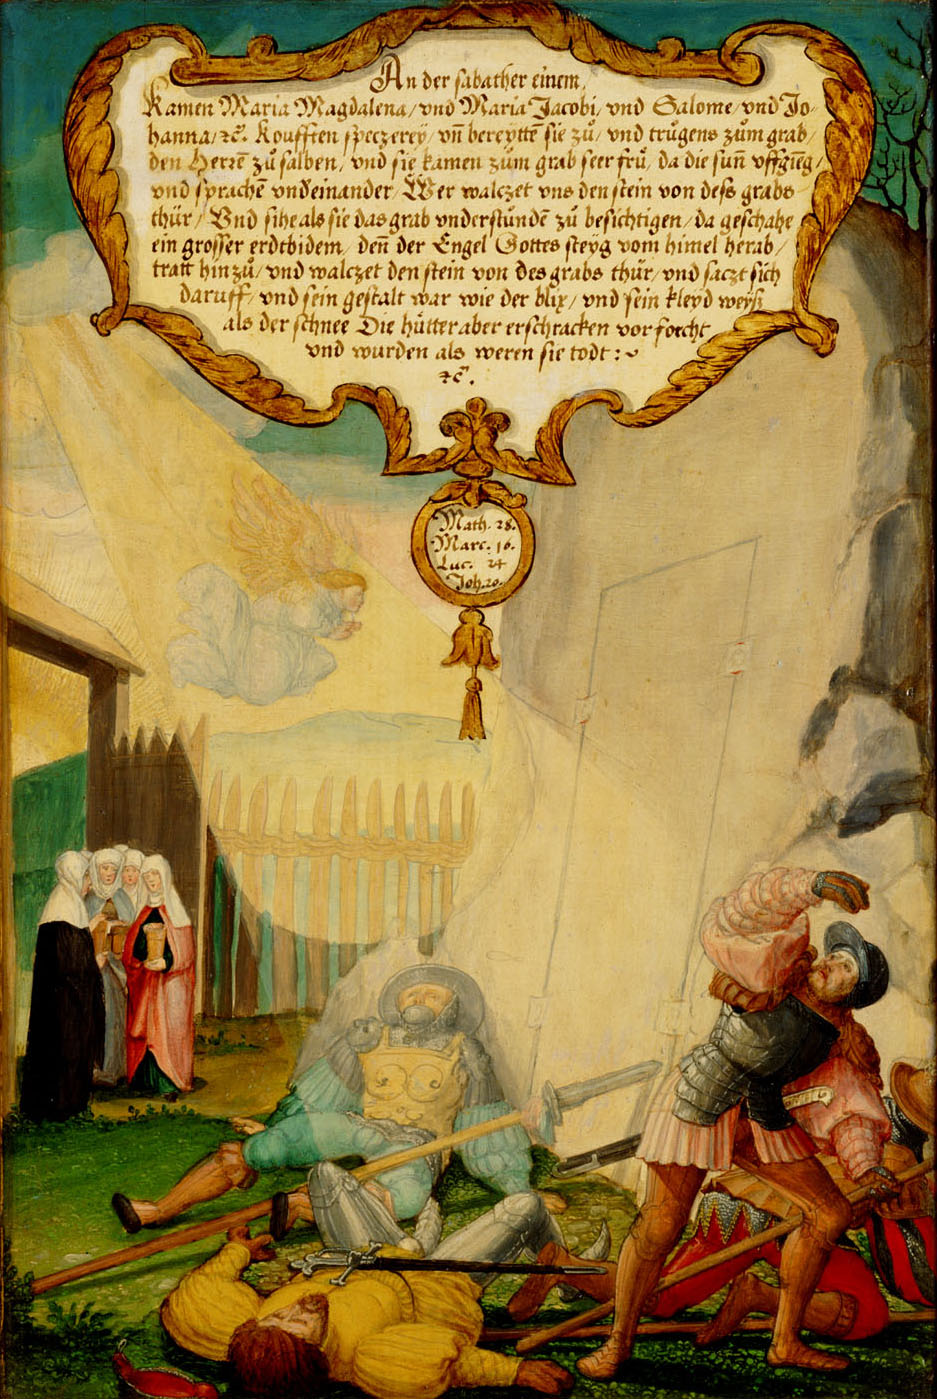 An der sabather einem,
Kamen Maria Magdalena/ vnd Maria Jacobi, vnd Salome/ vnd Jo-
hanna/ ꝛc̄. Koufften speczerey/ vn̄ bereyttē sie zů/ vnd trůgens zům grab/
den Herrē zů salben/ vnd sie kamen zům grab seer frů, da die sun̄ vffgieg/
vnd sprachē vndeinander/ Wer walczet vns den stein von dess grabs
thür/ Vnd sihe als sie das grab vnderstündē zů besichtigen/ da geschahe
ein grosser erdtbidem/ den̄ der Engel Gottes steÿg vom himel herab/
tratt hin zů/ vnd walczet den stein von des grabs thür/ vnd saczt sich
daruff/ vnd sein gestalt war wie der blix/ vnd sein kleyd weÿß
als der schnee Die hůtter aber erschracken vor forcht,
vnd wurden als weren sie todt:~
ꝛc̄.
Math. 28.
Marc. 16.
Luc. 24
Joh. 20.